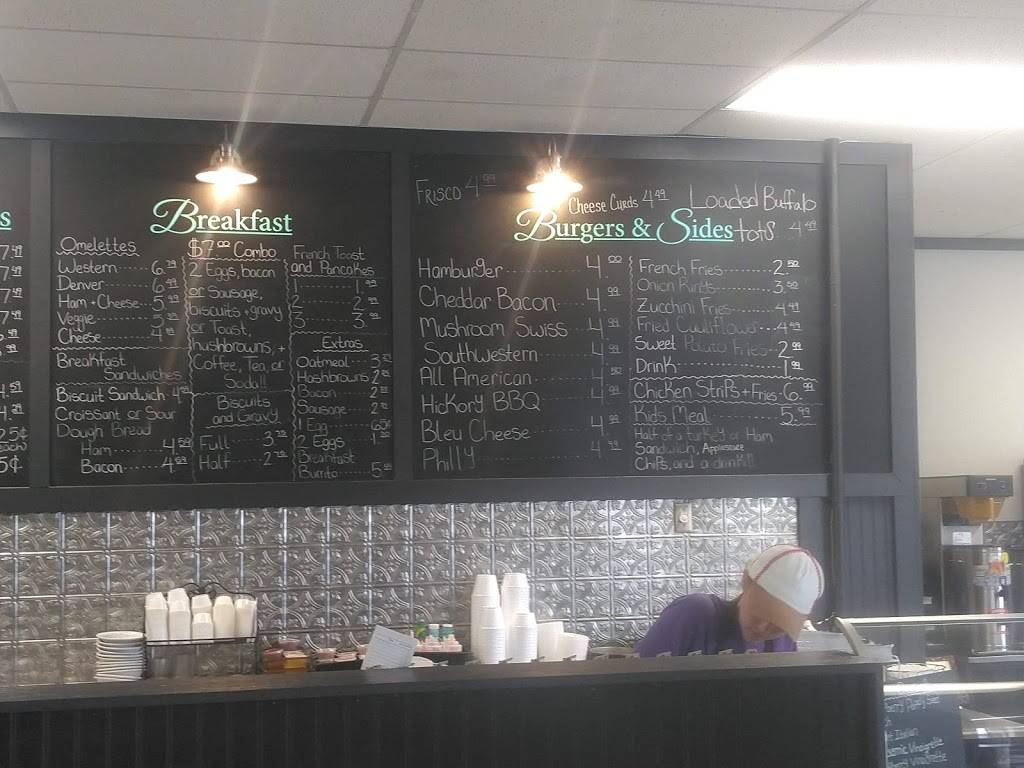 s
Breakfast
Omelettes
Western 6.
Denver 6.
Ham + Cheese 5.99
Veggie
Cheese 4.
Breakfast
Sandwiches
Biscuit Sandwich 4.
Croissant or Sour
Dough Bread
Ham 4.
Bacon 4.
$7.00 Combo
2 Eggs, bacon
or Sausage,
biscuits + gravy
or Toast,
hashbrowns, +
Coffee, Tea, or
Soda!!
Biscuits
and Gravy
Full 3.
Half 2.
French Toast
and Pancakes
1 1.99
2 2.99
3 3.99
Extras
Oatmeal 3.
Hashbrowns 2.
Bacon 2.
Sausage 2.
1 Egg 65¢
2 Eggs 1.
Breakfast
Burrito 5.
Frisco 4.99
Cheese Curds 4.49
Loaded Buffalo
tots 4.49
Burgers & Sides
Hamburger 4.00
Cheddar Bacon 4.99
Mushroom Swiss 4.99
Southwestern 4.99
All American 4.
Hickory BBQ 4.99
Bleu Cheese 4.99
Philly 4.99
French Fries 2.50
Onion Rings 3.50
Zucchini Fries 4.49
Fried Cauliflower 4.49
Sweet Potato Fries 2.99
Drink 1.99
Chicken Strips + Fries 6.99
Kids Meal 5.99
Half of a turkey or Ham
Sandwich, Applesauce
Chips, and a drink!!
Italian
Vinaigrette